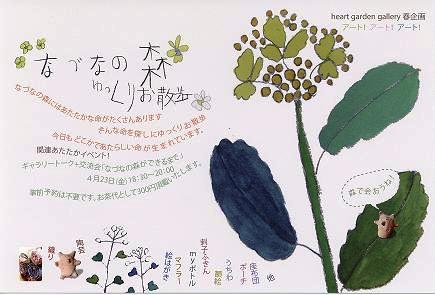 heart garden gallery 春企画
アート! アート! アート!
なづなの森
ゆっくりお散歩
なづなの森にはあたたかな命がたくさんあります
そんな命を探しにゆっくりお散歩
今日も どこかであたらしい命が生まれています。
関連あたたかイベント!
ギャラリートーク+交流会「なづなの森ができるまで」
4月23日(金)18:30〜20:00
事前予約は不要です。お茶代として300円頂戴いたします。
森で会おうね!
織り
陶芸
絵はがき
マフラー
myボトル
刺子ふきん
額絵
うちわ
ポーチ
座布団
他